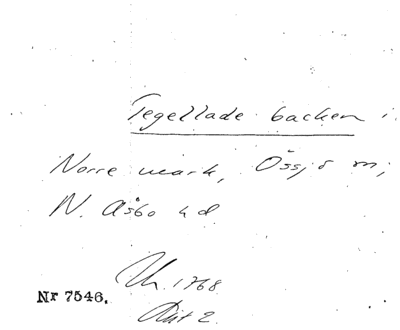 Tegellade backen i
Norre mark, Össjö m;
N. Åsbo hd
Uk. 1768
Akt 2.
Nr 7546.